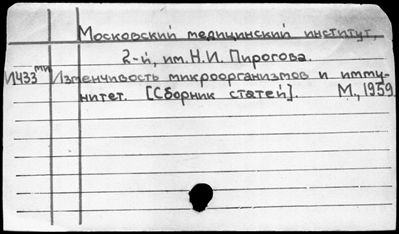 Московский медицинский институт,
2-й, им. Н.И. Пирогова.
И433ми Изменчивость микроорганизмов и имму-
нитет. [Сборник статей]. М., 1959